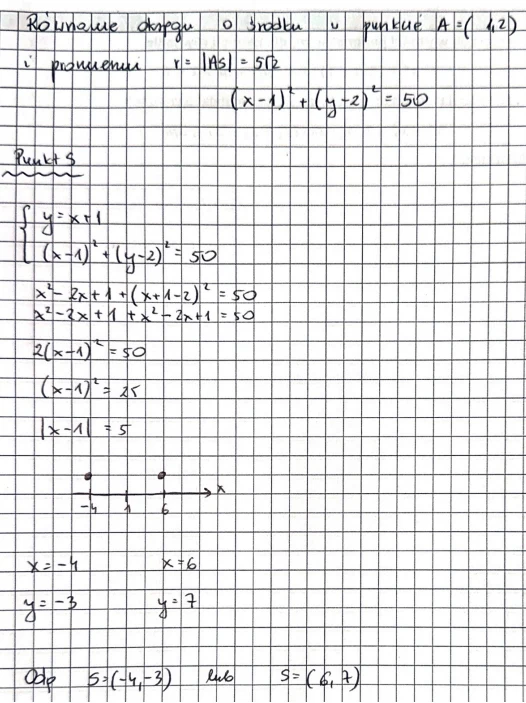 Równanie okręgu o środku w punkcie A = (1,2)
i promieniu r = |AS| = 5√2
(x-1)² + (y-2)² = 50
Punkt S
{ y = x+1
(x-1)² + (y-2)² = 50
x² - 2x + 1 + (x+1-2)² = 50
x² - 2x + 1 + x² - 2x + 1 = 50
2(x-1)² = 50
(x-1)² = 25
|x-1| = 5
x
-4 1 6
x = -4 x = 6
y = -3 y = 7
Odp S = (-4,-3) lub S = (6,7)